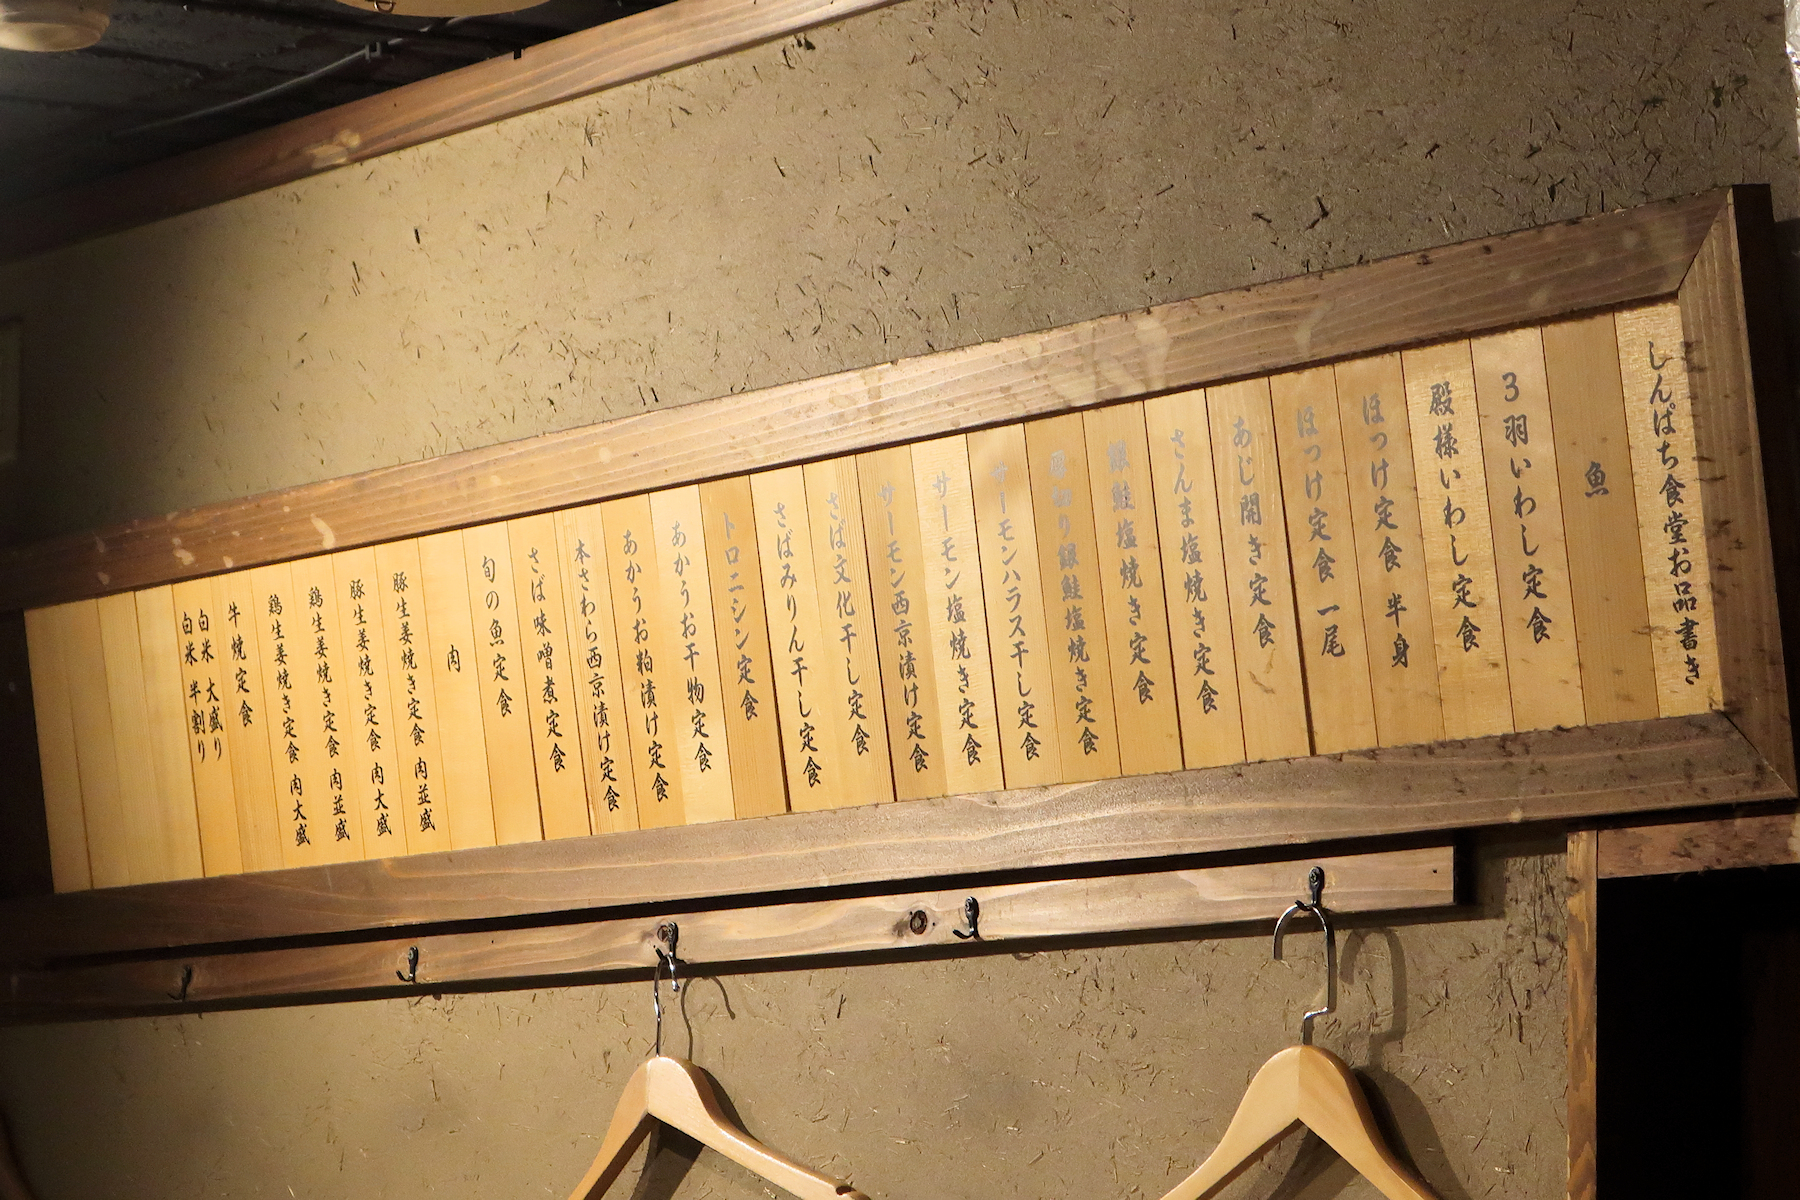 しんぱち食堂お品書き
魚
3羽いわし定食
殿様いわし定食
ほっけ定食 半身
ほっけ定食 一尾
あじ開き定食
さんま塩焼き定食
銀鮭塩焼き定食
厚切り銀鮭塩焼き定食
サーモンハラス干し定食
サーモン塩焼き定食
サーモン西京漬け定食
さば文化干し定食
さばみりん干し定食
トロニシン定食
あかうお干物定食
あかうお粕漬け定食
本さわら西京漬け定食
さば味噌煮定食
旬の魚定食
肉
豚生姜焼き定食 肉並盛
豚生姜焼き定食 肉大盛
鶏生姜焼き定食 肉並盛
鶏生姜焼き定食 肉大盛
牛焼定食
白米 大盛り
白米 半割り